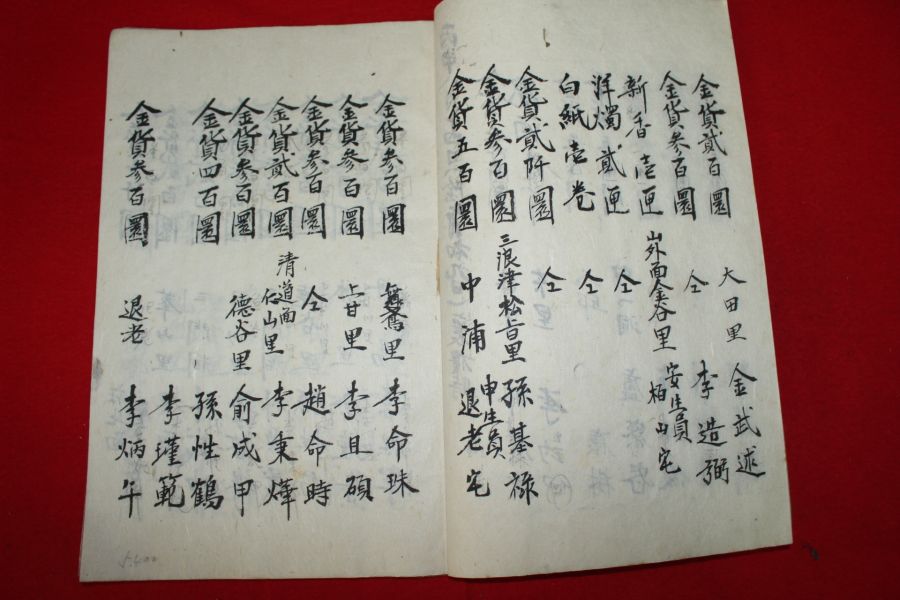 金貨貳百圜 大田里 金武述
金貨参百圜 仝 李造弼
新香壱匣 山外面金谷里 安生員柏由宅
洋燭貳匣 仝
白紙壱卷 仝
金貨貳阡圜 仝
金貨参百圜 三浪津松旨里 孫基祿
金貨五百圜 中浦 申生員退老宅
金貨参百圜 里 李命珠
金貨参百圜 上甘里 李且碩
金貨参百圜 仝 趙命時
金貨貳百圜 清道面仁山里 李秉燁
金貨参百圜 德谷里 俞成甲
金貨四百圜 孫性鶴
李瑾範
金貨参百圜 退老 李炳午